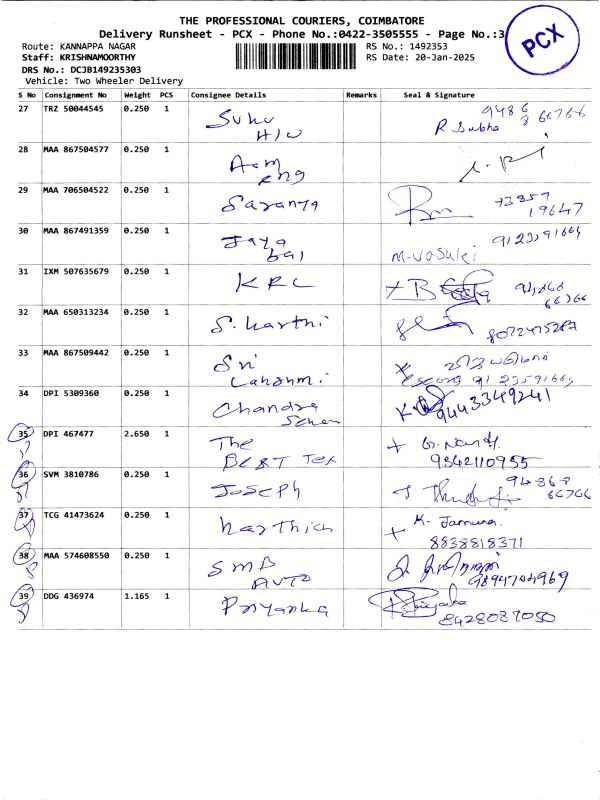 THE PROFESSIONAL COURIERS, COIMBATORE
Delivery Runsheet - PCX - Phone No.:0422-3505555 - Page No.:3
PCX
Route: KANNAPPA NAGAR
RS No.: 1492353
Staff: KRISHNAMOORTHY
RS Date: 20-Jan-2025
DRS No.: DCJB149235303
Vehicle: Two Wheeler Delivery
S No Consignment No Weight PCS Consignee Details Remarks Seal & Signature
27 TRZ 50044545 0.250 1 R Subha
28 MAA 867504577 0.250 1
29 MAA 706504522 0.250 1 Saranya
19647
30 MAA 867491359 0.250 1 Jaya M-vasuki
31 IXM 507635679 0.250 1 KRC
66766
32 MAA 650313234 0.250 1 S. Karthi
33 MAA 867509442 0.250 1 Sri
34 DPI 5309360 0.250 1 Chandra 9443349241
35 DPI 467477 2.650 1 The
BEST Tex 9342110955
36 SVM 3810786 0.250 1 Joseph
66766
37 TCG 41473624 0.250 1 Karthick K. Jamuna
8838818371
38 MAA 574608550 0.250 1 SMB
AUTO 9894704969
39 DDG 436974 1.165 1 Priyanka
8428087050